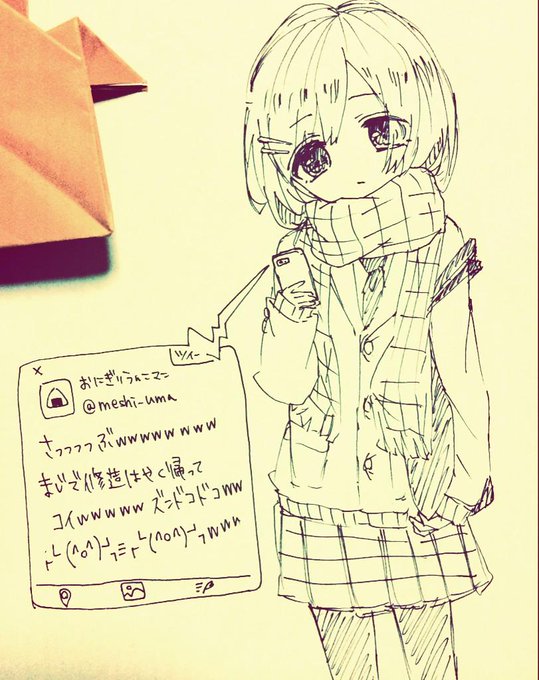 ×
ツイー
おにぎりうんこマン
@meshi_uma
さっっっっぶwwwww www
まじで修造はやく帰って
コイwwwww ズンドコドコww
┌└(^o^)┘┐≡┌└(^o^)┘┐www